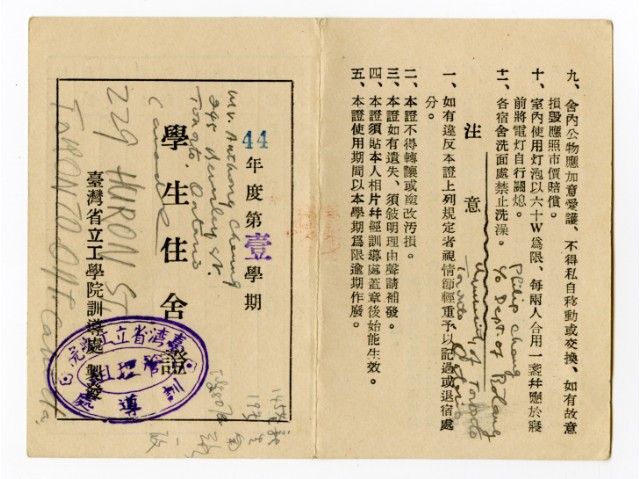 九、舍內公物應加意愛護、不得私自移動或交換、如有故意
損毀應照市價賠償。
十、室內使用灯泡以六十W為限、每兩人合用一盞幷應於寢
前將電灯自行關熄。
十一、各宿舍洗面處禁止洗澡。
注意
一、如有違反本證上列規定者視情節輕重予以記過或退宿處
分。
二、本證不得轉讓或塗改汚損。
三、本證如有遺失、須敍明理由聲請補發。
四、本證須貼本人相片幷經訓導處蓋章後始能生效。
五、本證使用期間以本學期為限逾期作廢。
Philip Chang
c/o Dept. of Botany
University of Toronto
Toronto Ontario
44年度第壹學期
學生住舍證
臺灣省立工學院訓導處製發
Mr. Anthony Cheung
295 Beverley St.
Toronto, Ontario
Canada
229 HURON ST
TORONTO ONT Canada
臺灣省立工學院
管理組
訓導處